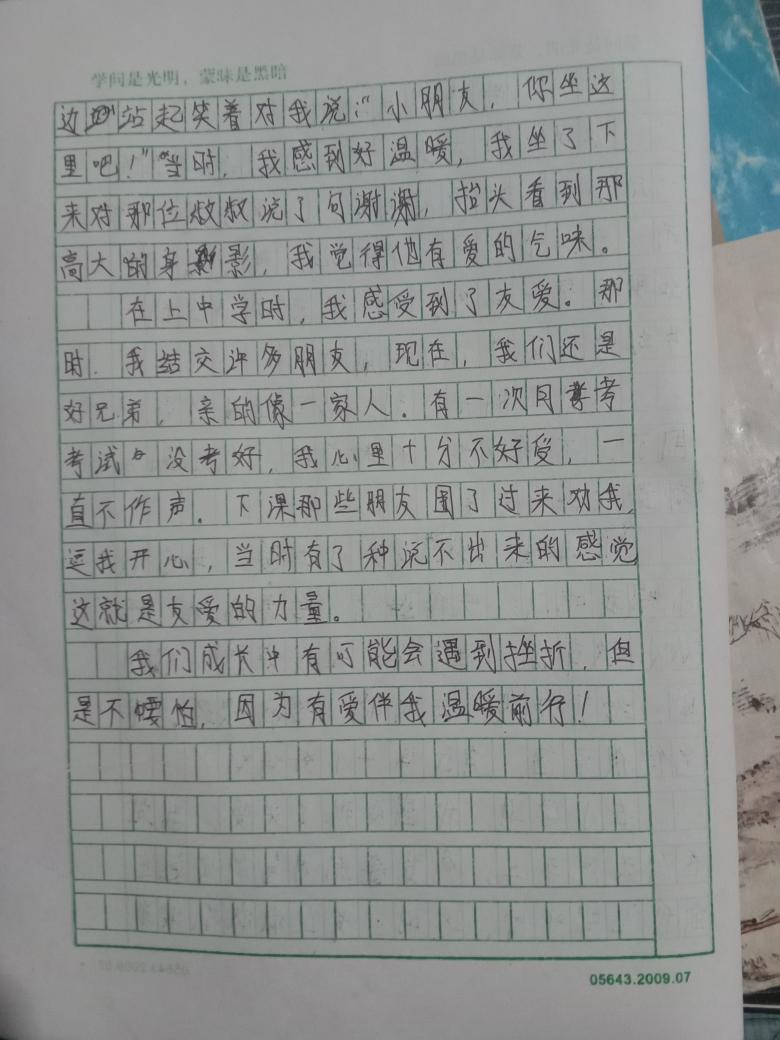 学问是光明，蒙昧是黑暗
边站起笑着对我说："小朋友，你坐这
里吧！"当时，我感到好温暖，我坐了下
来对那位叔叔说了句谢谢，抬头看到那
高大的身影，我觉得他有爱的气味。
在上中学时，我感受到了友爱。那
时.我结交许多朋友，现在，我们还是
好兄弟，亲的像一家人.有一次月考
考试没考好，我心里十分不好受，一
直不作声.下课那些朋友围了过来劝我，
逗我开心，当时有了种说不出来的感觉
这就是友爱的力量。
我们成长中有可能会遇到挫折，但
是不要怕，因为有爱伴我温暖前行！
05643.2009.07